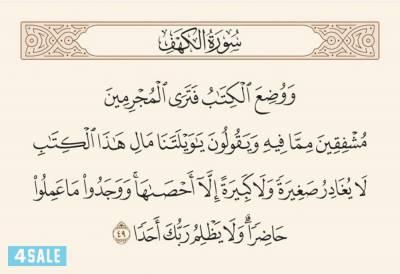 سُورَةُ الكَهۡفِ
وَوُضِعَ ٱلۡكِتَٰبُ فَتَرَى ٱلۡمُجۡرِمِينَ
مُشۡفِقِينَ مِمَّا فِيهِ وَيَقُولُونَ يَٰوَيۡلَتَنَا مَالِ هَٰذَا ٱلۡكِتَٰبِ
لَا يُغَادِرُ صَغِيرَةٗ وَلَا كَبِيرَةً إِلَّآ أَحۡصَىٰهَاۚ وَوَجَدُواْ مَا عَمِلُواْ
حَاضِرٗاۗ وَلَا يَظۡلِمُ رَبُّكَ أَحَدٗا ٤٩
4SALE